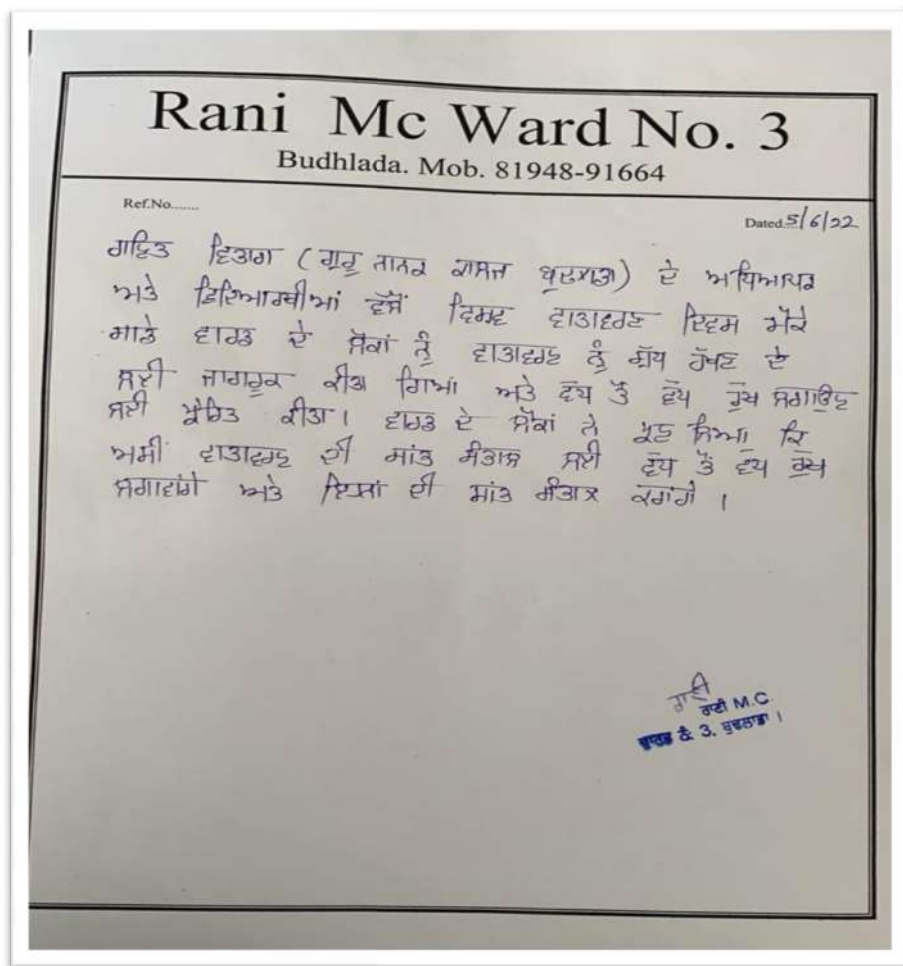 Rani Mc Ward No. 3
Budhlada. Mob. 81948-91664
Ref.No.......
Dated 5/6/22
ਗਣਿਤ ਵਿਭਾਗ (ਗੁਰੂ ਨਾਨਕ ਕਾਲਜ ਬੁਢਲਾਡਾ) ਦੇ ਅਧਿਆਪਕ
ਅਤੇ ਵਿਦਿਆਰਥੀਆਂ ਵੱਲੋਂ ਵਿਸ਼ਵ ਵਾਤਾਵਰਣ ਦਿਵਸ ਮੌਕੇ
ਸਾਡੇ ਵਾਰਡ ਦੇ ਲੋਕਾਂ ਨੂੰ ਵਾਤਾਵਰਣ ਨੂੰ ਸ਼ੁੱਧ ਰੱਖਣ ਦੇ
ਲਈ ਜਾਗਰੂਕ ਕੀਤਾ ਗਿਆ ਅਤੇ ਵੱਧ ਤੋਂ ਵੱਧ ਰੁੱਖ ਲਗਾਉਣ
ਲਈ ਪ੍ਰੇਰਿਤ ਕੀਤਾ। ਵਾਰਡ ਦੇ ਲੋਕਾਂ ਨੇ ਪ੍ਰਣ ਲਿਆ ਕਿ
ਅਸੀਂ ਵਾਤਾਵਰਣ ਦੀ ਸਾਂਭ ਸੰਭਾਲ ਲਈ ਵੱਧ ਤੋਂ ਵੱਧ ਰੁੱਖ
ਲਗਾਵਾਂਗੇ ਅਤੇ ਇਨ੍ਹਾਂ ਦੀ ਸਾਂਭ ਸੰਭਾਲ ਕਰਾਂਗੇ ।
ਰਾਣੀ
ਰਾਣੀ M.C.
ਵਾਰਡ ਨੰ: 3, ਬੁਢਲਾਡਾ ।